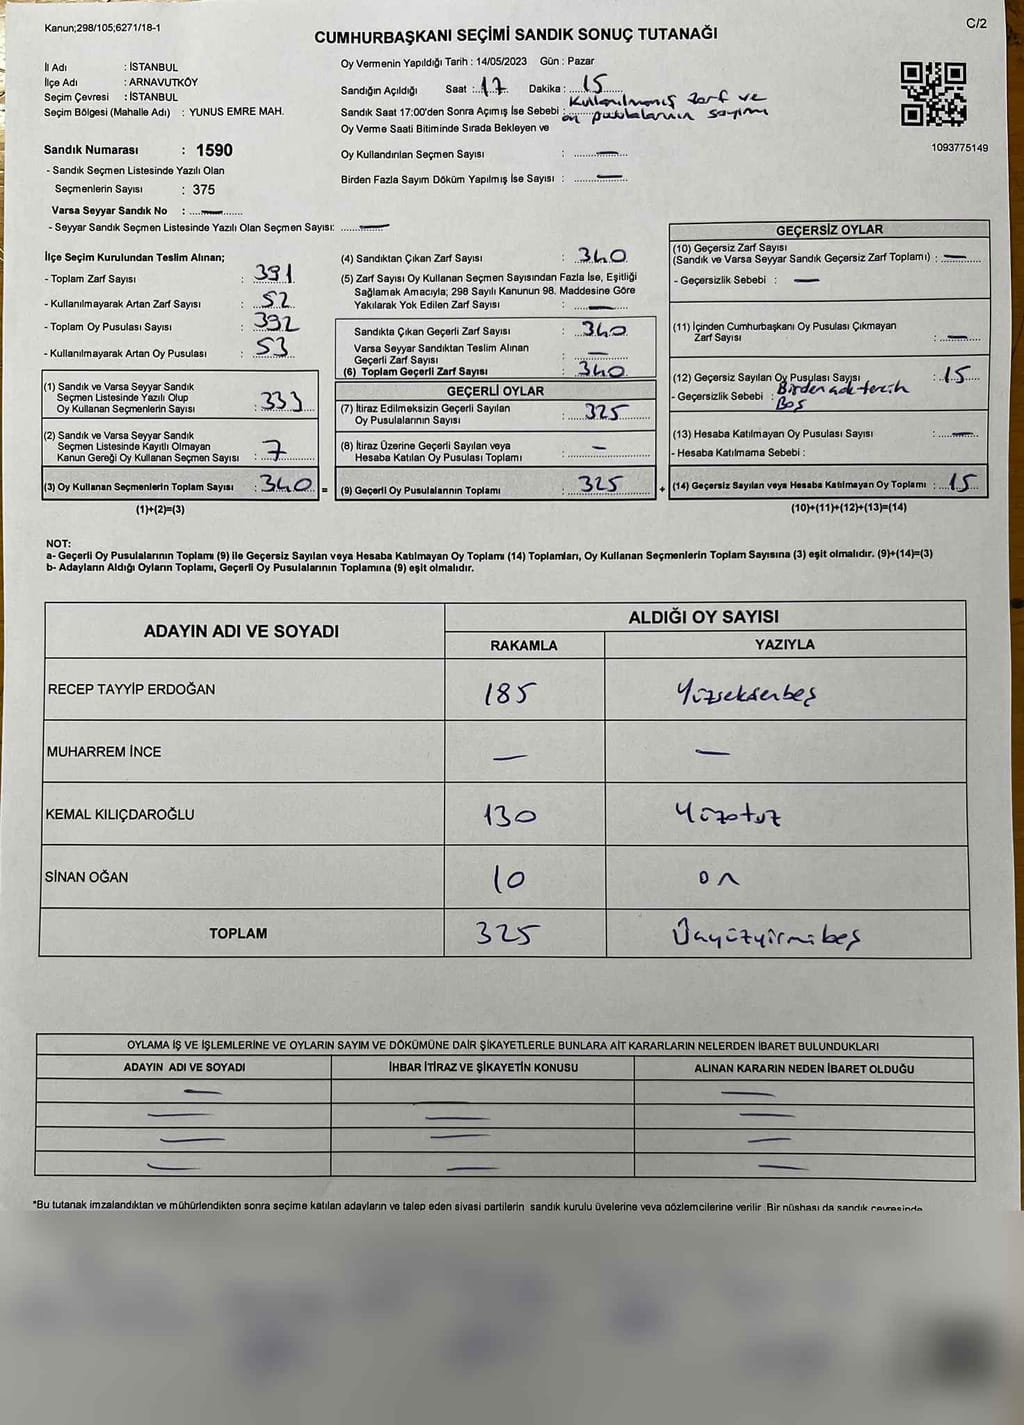 Kanun;298/105;6271/18-1
C/2
CUMHURBAŞKANI SEÇİMİ SANDIK SONUÇ TUTANAĞI
İl Adı : İSTANBUL
İlçe Adı : ARNAVUTKÖY
Seçim Çevresi : İSTANBUL
Seçim Bölgesi (Mahalle Adı) : YUNUS EMRE MAH.
Sandık Numarası : 1590
- Sandık Seçmen Listesinde Yazılı Olan
Seçmenlerin Sayısı : 375
Varsa Seyyar Sandık No : —
- Seyyar Sandık Seçmen Listesinde Yazılı Olan Seçmen Sayısı: —
Oy Vermenin Yapıldığı Tarih : 14/05/2023 Gün : Pazar
Sandığın Açıldığı Saat : 17 Dakika : 15
Sandık Saat 17:00'den Sonra Açımış İse Sebebi : Kullanılmamış zarf ve
oy pusulalarının sayımı
Oy Verme Saati Bitiminde Sırada Bekleyen ve
Oy Kullandırılan Seçmen Sayısı : —
Birden Fazla Sayım Döküm Yapılmış İse Sayısı : —
1093775149
İlçe Seçim Kurulundan Teslim Alınan;
- Toplam Zarf Sayısı : 391
- Kullanılmayarak Artan Zarf Sayısı : 52
- Toplam Oy Pusulası Sayısı : 392
- Kullanılmayarak Artan Oy Pusulası : 53
(1) Sandık ve Varsa Seyyar Sandık
Seçmen Listesinde Yazılı Olup
Oy Kullanan Seçmenlerin Sayısı : 333
(2) Sandık ve Varsa Seyyar Sandık
Seçmen Listesinde Kayıtlı Olmayan
Kanun Gereği Oy Kullanan Seçmen Sayısı : 7
(3) Oy Kullanan Seçmenlerin Toplam Sayısı : 340 =
(1)+(2)=(3)
(4) Sandıktan Çıkan Zarf Sayısı : 340
(5) Zarf Sayısı Oy Kullanan Seçmen Sayısından Fazla İse, Eşitliği
Sağlamak Amacıyla; 298 Sayılı Kanunun 98. Maddesine Göre
Yakılarak Yok Edilen Zarf Sayısı : —
Sandıkta Çıkan Geçerli Zarf Sayısı : 340
Varsa Seyyar Sandıktan Teslim Alınan
Geçerli Zarf Sayısı : —
(6) Toplam Geçerli Zarf Sayısı : 340
GEÇERLİ OYLAR
(7) İtiraz Edilmeksizin Geçerli Sayılan
Oy Pusulalarının Sayısı : 325
(8) İtiraz Üzerine Geçerli Sayılan veya
Hesaba Katılan Oy Pusulası Toplamı : —
(9) Geçerli Oy Pusulalarının Toplamı : 325 +
GEÇERSİZ OYLAR
(10) Geçersiz Zarf Sayısı
(Sandık ve Varsa Seyyar Sandık Geçersiz Zarf Toplamı) : —
- Geçersizlik Sebebi : —
(11) İçinden Cumhurbaşkanı Oy Pusulası Çıkmayan
Zarf Sayısı : —
(12) Geçersiz Sayılan Oy Pusulası Sayısı : 15
- Geçersizlik Sebebi : Birden çok tercih
Boş
(13) Hesaba Katılmayan Oy Pusulası Sayısı : —
- Hesaba Katılmama Sebebi :
(14) Geçersiz Sayılan veya Hesaba Katılmayan Oy Toplamı : 15
(10)+(11)+(12)+(13)=(14)
NOT:
a- Geçerli Oy Pusulalarının Toplamı (9) ile Geçersiz Sayılan veya Hesaba Katılmayan Oy Toplamı (14) Toplamları, Oy Kullanan Seçmenlerin Toplam Sayısına (3) eşit olmalıdır. (9)+(14)=(3)
b- Adayların Aldığı Oyların Toplamı, Geçerli Oy Pusulalarının Toplamına (9) eşit olmalıdır.
ADAYIN ADI VE SOYADI ALDIĞI OY SAYISI
RAKAMLA YAZIYLA
RECEP TAYYİP ERDOĞAN 185 Yüzseksenbeş
MUHARREM İNCE — —
KEMAL KILIÇDAROĞLU 130 Yüzotuz
SİNAN OĞAN 10 on
TOPLAM 325 Üçyüzyirmibeş
OYLAMA İŞ VE İŞLEMLERİNE VE OYLARIN SAYIM VE DÖKÜMÜNE DAİR ŞİKAYETLERLE BUNLARA AİT KARARLARIN NELERDEN İBARET BULUNDUKLARI
ADAYIN ADI VE SOYADI İHBAR İTİRAZ VE ŞİKAYETİN KONUSU ALINAN KARARIN NEDEN İBARET OLDUĞU
— —
— — —
— — —
— — —
*Bu tutanak imzalandıktan ve mühürlendikten sonra seçime katılan adayların ve talep eden siyasi partilerin sandık kurulu üyelerine veya gözlemcilerine verilir. Bir nüshası da sandık çevresinde